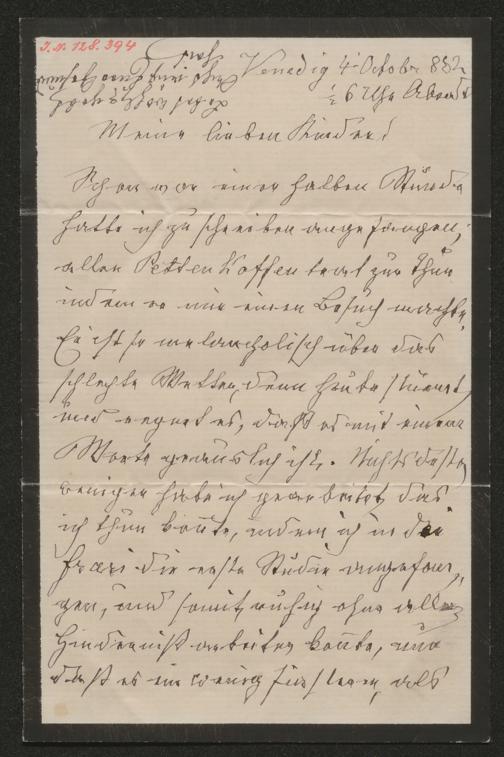 J.N. 128.394
Venedig 4 October 882
½ 6 Uhr Abends
Meine lieben Kinder!
Schon vor einer halben Stunde
hatte ich zu schreiben angefangen,
allein Pettenkoffen trat zur Thür
indem er mir einen Besuch machte,
Er ist so melancholisch über das
schlechte Wetter, denn heute stürmt
und regnet es, daß es mit einem
Worte grauslich ist. Nichtsdesto
weniger habe ich gearbeitet, das
ich thun konte, indem ich in der
Frari die erste Studie angefan
gen, und somit ruhig ohne alle
Hinderniß arbeiten konte, nur
daß es ein wenig finster, als